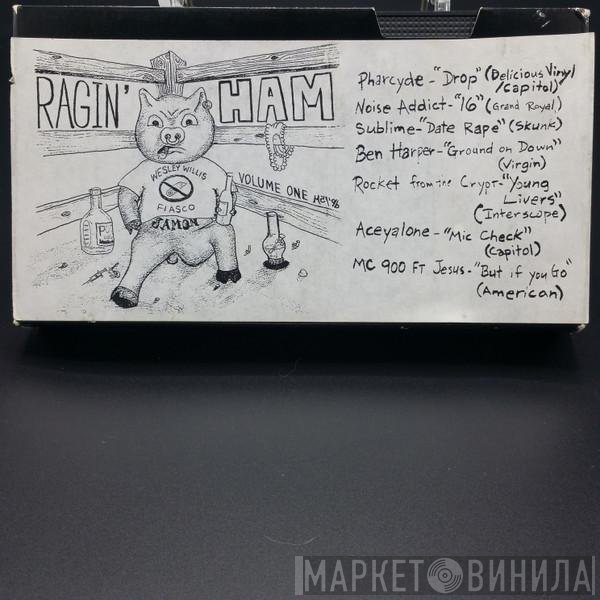 RAGIN' HAM
WESLEY WILLIS
FIASCO
JAMON
VOLUME ONE
Pharcyde-"Drop" (Delicious Vinyl
/Capitol)
Noise Addict-"16" (Grand Royal)
Sublime-"Date Rape" (Skunk)
Ben Harper-"Ground on Down"
(Virgin)
Rocket from the Crypt-"Young
Livers"
(Interscope)
Aceyalone-"Mic Check"
(Capitol)
MC 900 FT Jesus-"But if you Go"
(American)
МАРКЕТ ВИНИЛА